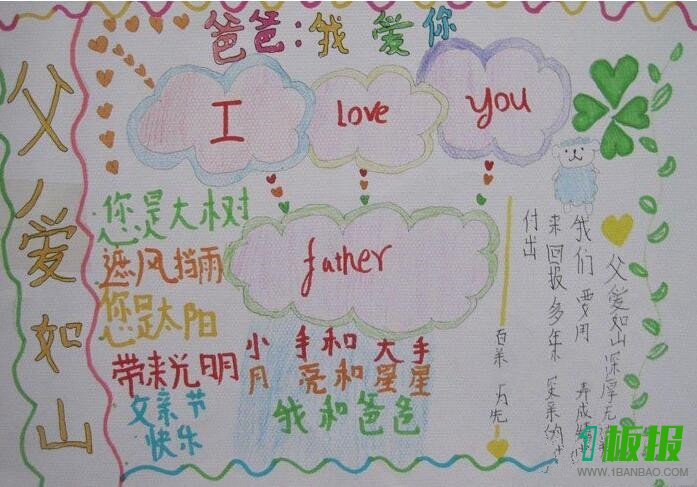 爸爸:我爱你
父爱如山
I love you
father
您是大树
遮风挡雨
您是太阳
带来光明
父亲节
快乐
小手和大手
月亮和星星
我和爸爸
父爱如山深厚无
我们要用
来回报多年父亲的
付出
板报
WWW.1BANBAO.COM